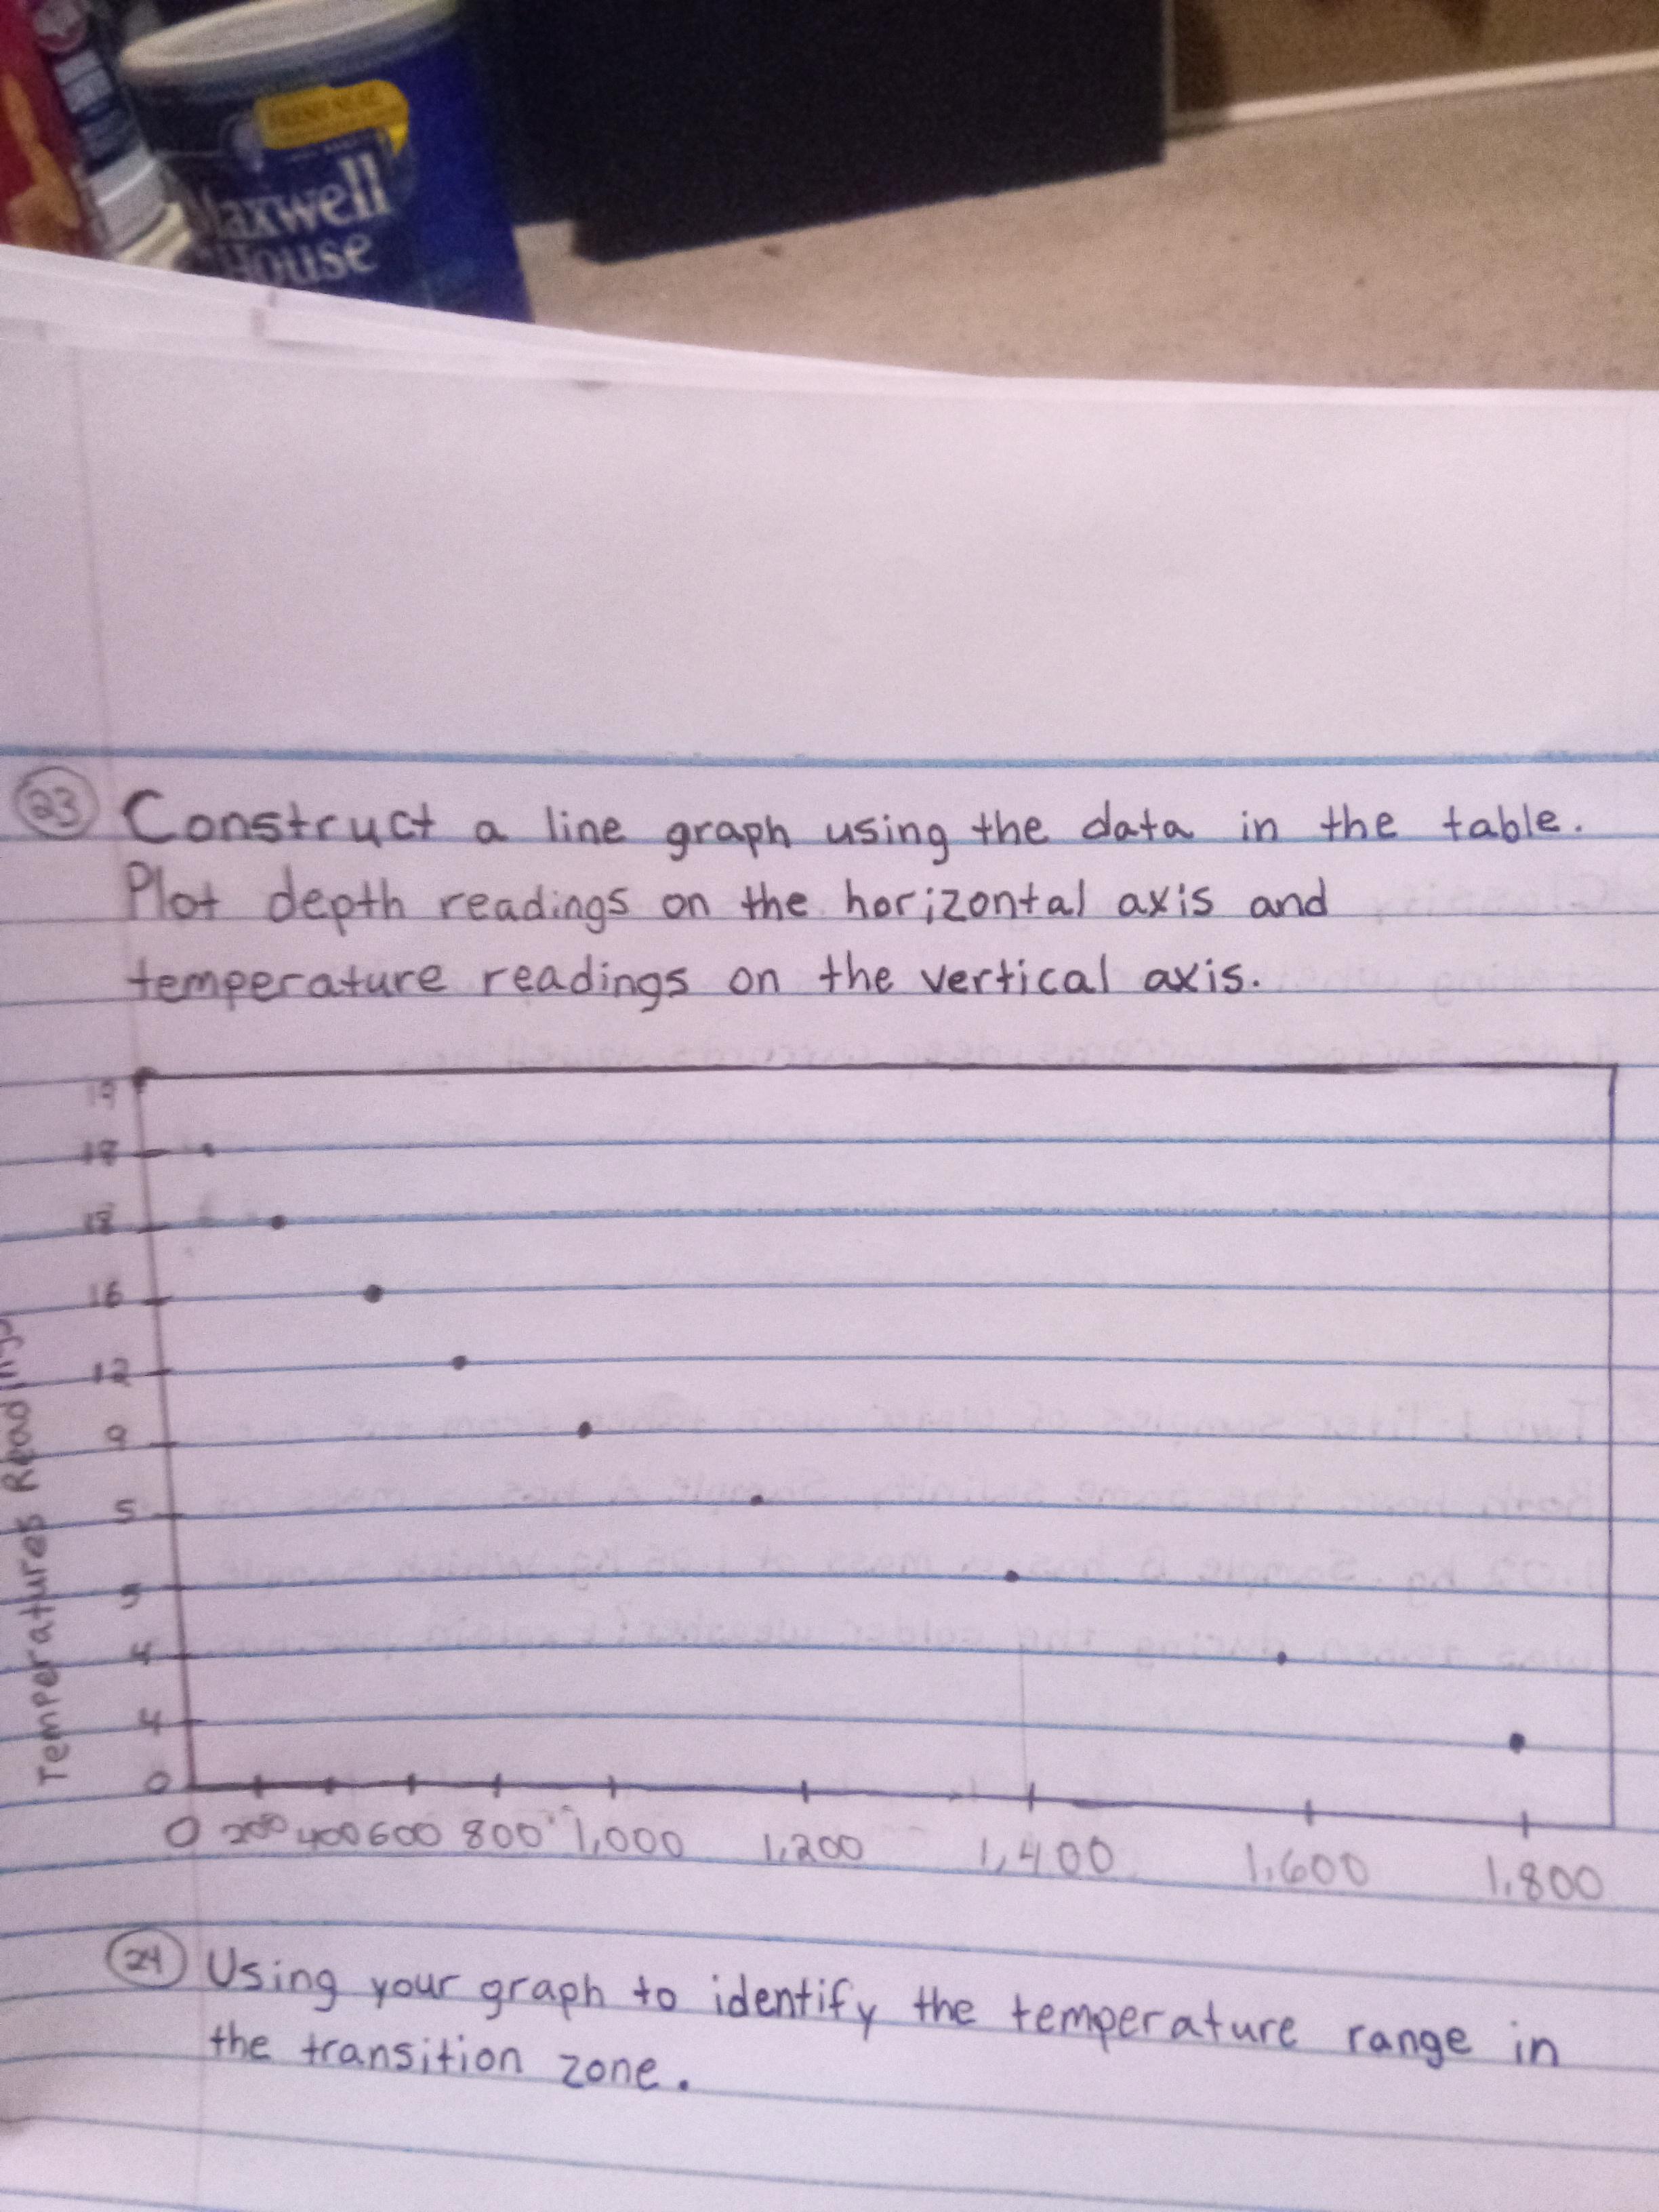 Maxwell
House
23 Construct a line graph using the data in the table.
Plot depth readings on the horizontal axis and
temperature readings on the vertical axis.
Temperatures Readings
19
18
16
12
9
5
5
4
4
0
0 200 400 600 800 1,000 1,200 1,400 1,600 1,800
24 Using your graph to identify the temperature range in
the transition zone.